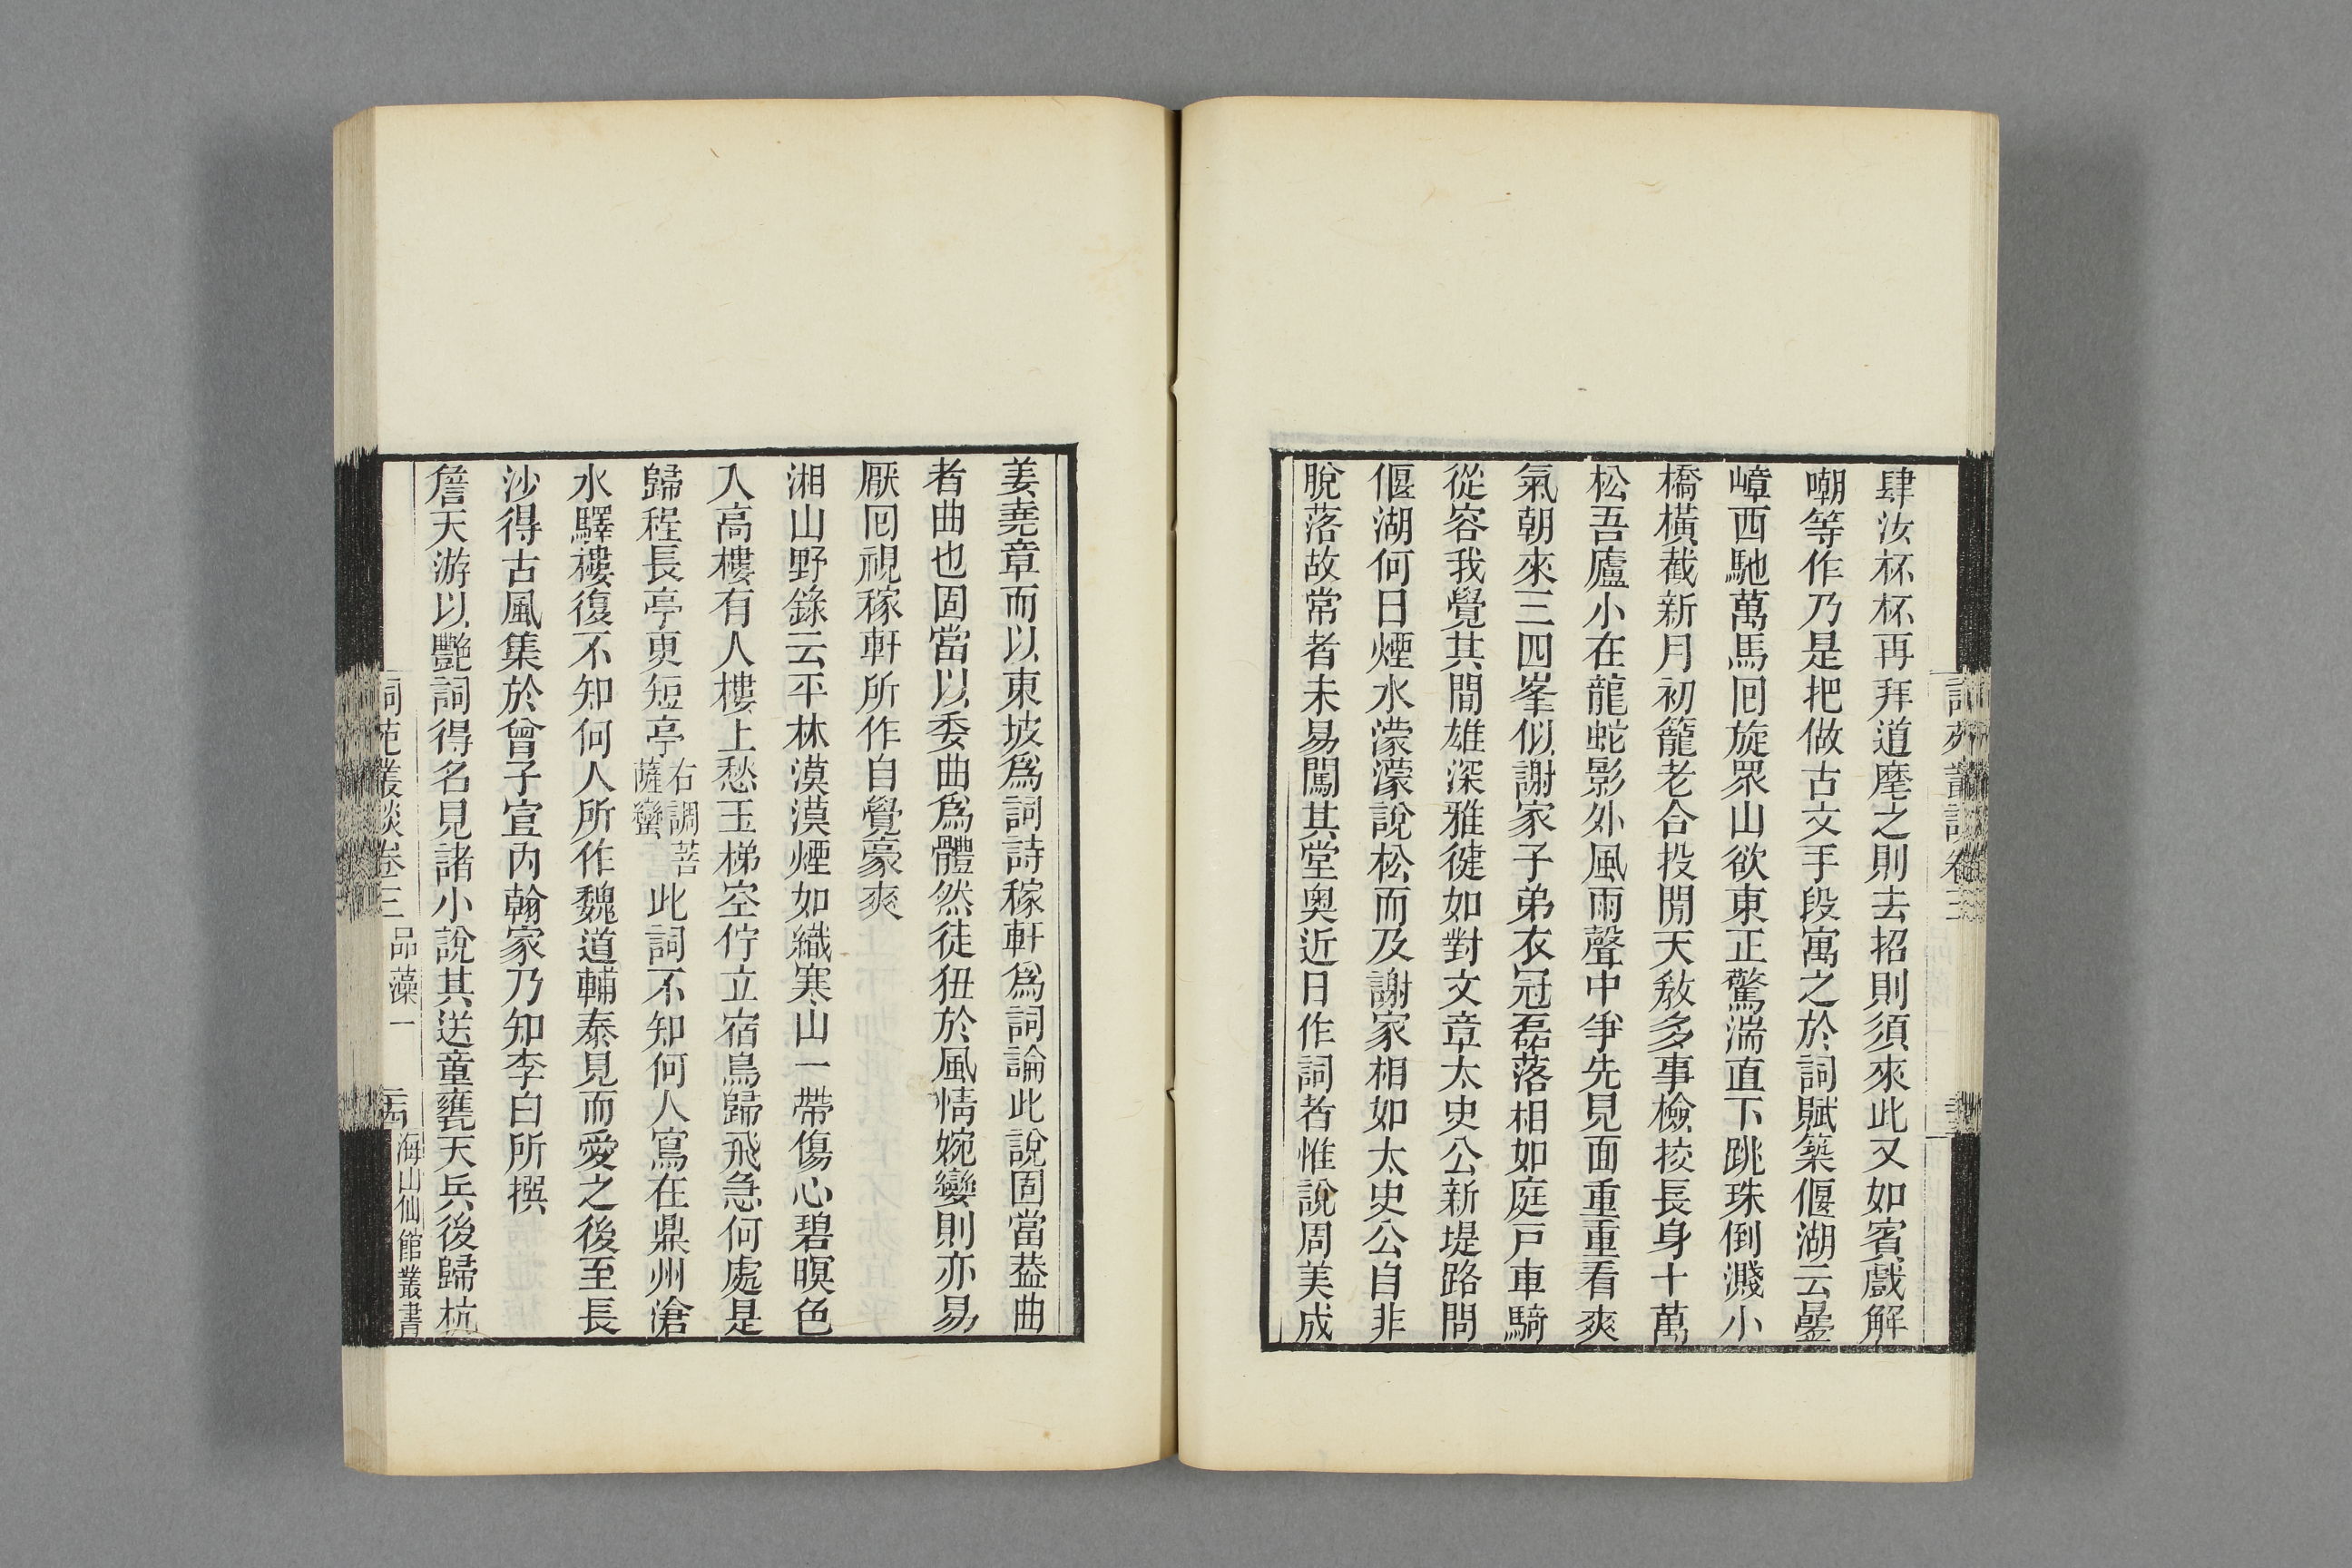 肆汝杯杯再拜道麾之則去招則須來此又如賓戲解
嘲等作乃是把做古文手段寓之於詞賦築偃湖云曡
嶂西馳萬馬囘旋眾山欲東正驚湍直下跳珠倒濺小
橋橫截新月初籠老合投閒天敎多事檢挍長身十萬
松吾廬小在龍蛇影外風雨聲中爭先見面重重看爽
氣朝來三四峯似謝家子弟衣冠磊落相如庭戸車騎
從容我覺其間雄深雅健如對文章太史公新堤路問
偃湖何日煙水濛濛說松而及謝家相如太史公自非
脫落故常者未易闖其堂奧近日作詞者惟說周美成
姜堯章而以東坡爲詞詩稼軒爲詞論此說固當葢曲
者曲也固當以委曲爲體然徒狃於風情婉孌則亦易
厭囘視稼軒所作自覺豪爽
湘山野錄云平林漠漠煙如織寒山一帶傷心碧暝色
入高樓有人樓上愁玉梯空佇立宿鳥歸飛急何處是
歸程長亭更短亭右調菩薩蠻此詞不知何人寫在鼎州滄
水驛樓復不知何人所作魏道輔泰見而愛之後至長
沙得古風集於曾子宣內翰家乃知李白所撰
詹天游以艷詞得名見諸小說其送童甕天兵後歸杭
詞苑叢談卷三 品藻一 海山仙館叢書